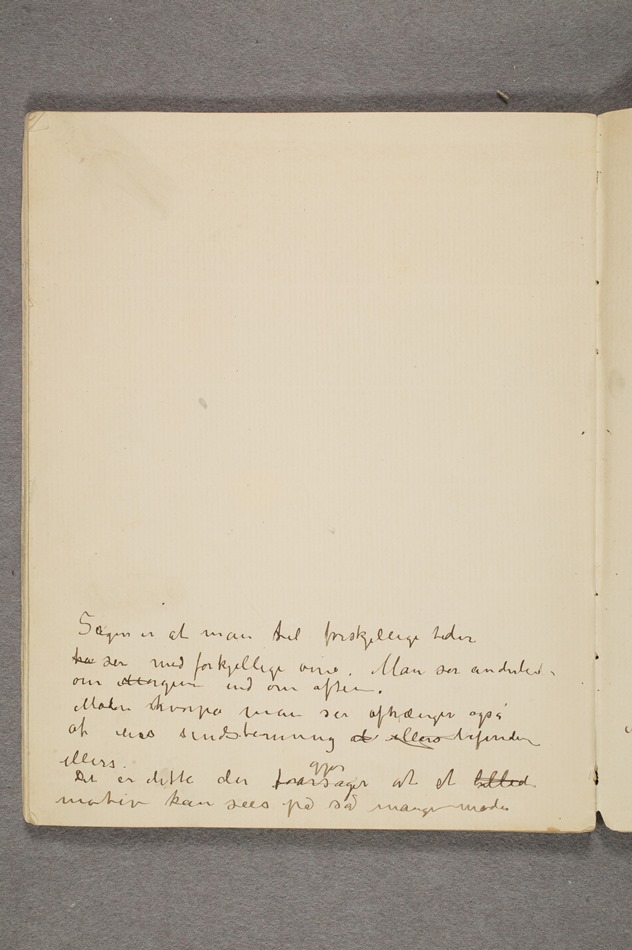 Sagen er at man til forskjellige tider
ha ser med forkjellige øine. Man ser anderledes
om Morgen end om aften.
Måden hvorpå man ser afhænger også
af ens sindstemning at ellers befinder
ellers.
gjør
Det er dette der foraarsager at et billed
motiv kan sees på så mange måder